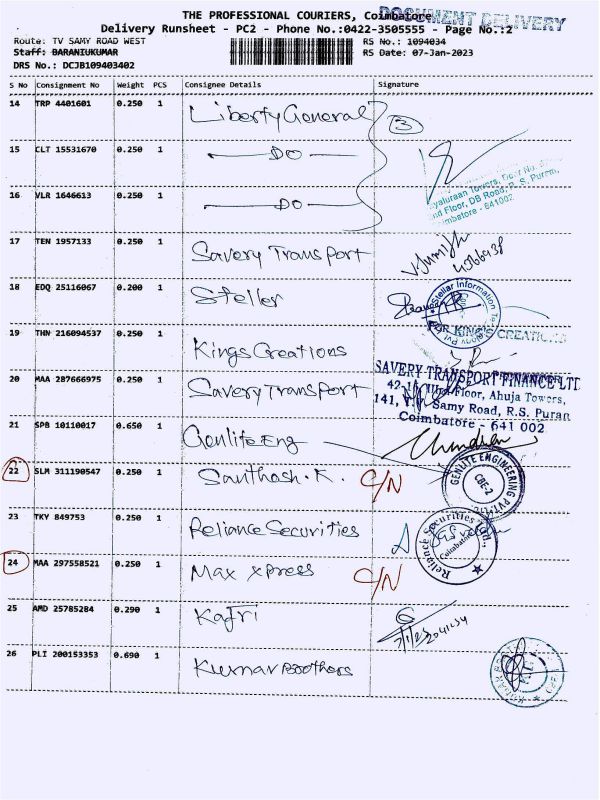 THE PROFESSIONAL COURIERS, Coimbatore
DOCUMENT DELIVERY
Delivery Runsheet - PC2 - Phone No.:0422-3505555 - Page No.:2
Route: TV SAMY ROAD WEST
RS No.: 1094034
Staff: BARANIUKUMAR
RS Date: 07-Jan-2023
DRS No.: DCJB109403402
S No Consignment No Weight PCS Consignee Details Signature
14 TRP 4401601 0.250 1 Liberty General 3
15 CLT 15531670 0.250 1 DO
16 VLR 1646613 0.250 1 DO
Towers, DB Road, R. S. Puram,
Coimbatore - 641002
17 TEN 1957133 0.250 1 Savery Transport
18 EDQ 25116067 0.200 1 Steller
Stellar Information
FOR KING'S CREATIONS
19 THN 216094537 0.250 1 Kings Creations
20 MAA 287666975 0.250 1 Savery Transport
SAVERY TRANSPORT FINANCE LTD
Floor, Ahuja Towers,
141, T.V. Samy Road, R.S. Puram
Coimbatore - 641 002
21 SPB 10110017 0.650 1 Genlite Eng
GENLITE ENGINEERING PVT
CBE-2
22 SLM 311190547 0.250 1 Santhosh.K. C/N
23 TKY 849753 0.250 1 Reliance Securities
Reliance Securities Ltd.,
Coimbatore
24 MAA 297558521 0.250 1 Max Xpress C/N
25 AMD 25785284 0.290 1 Kajri
26 PLI 200153353 0.690 1 Kumar Boothers